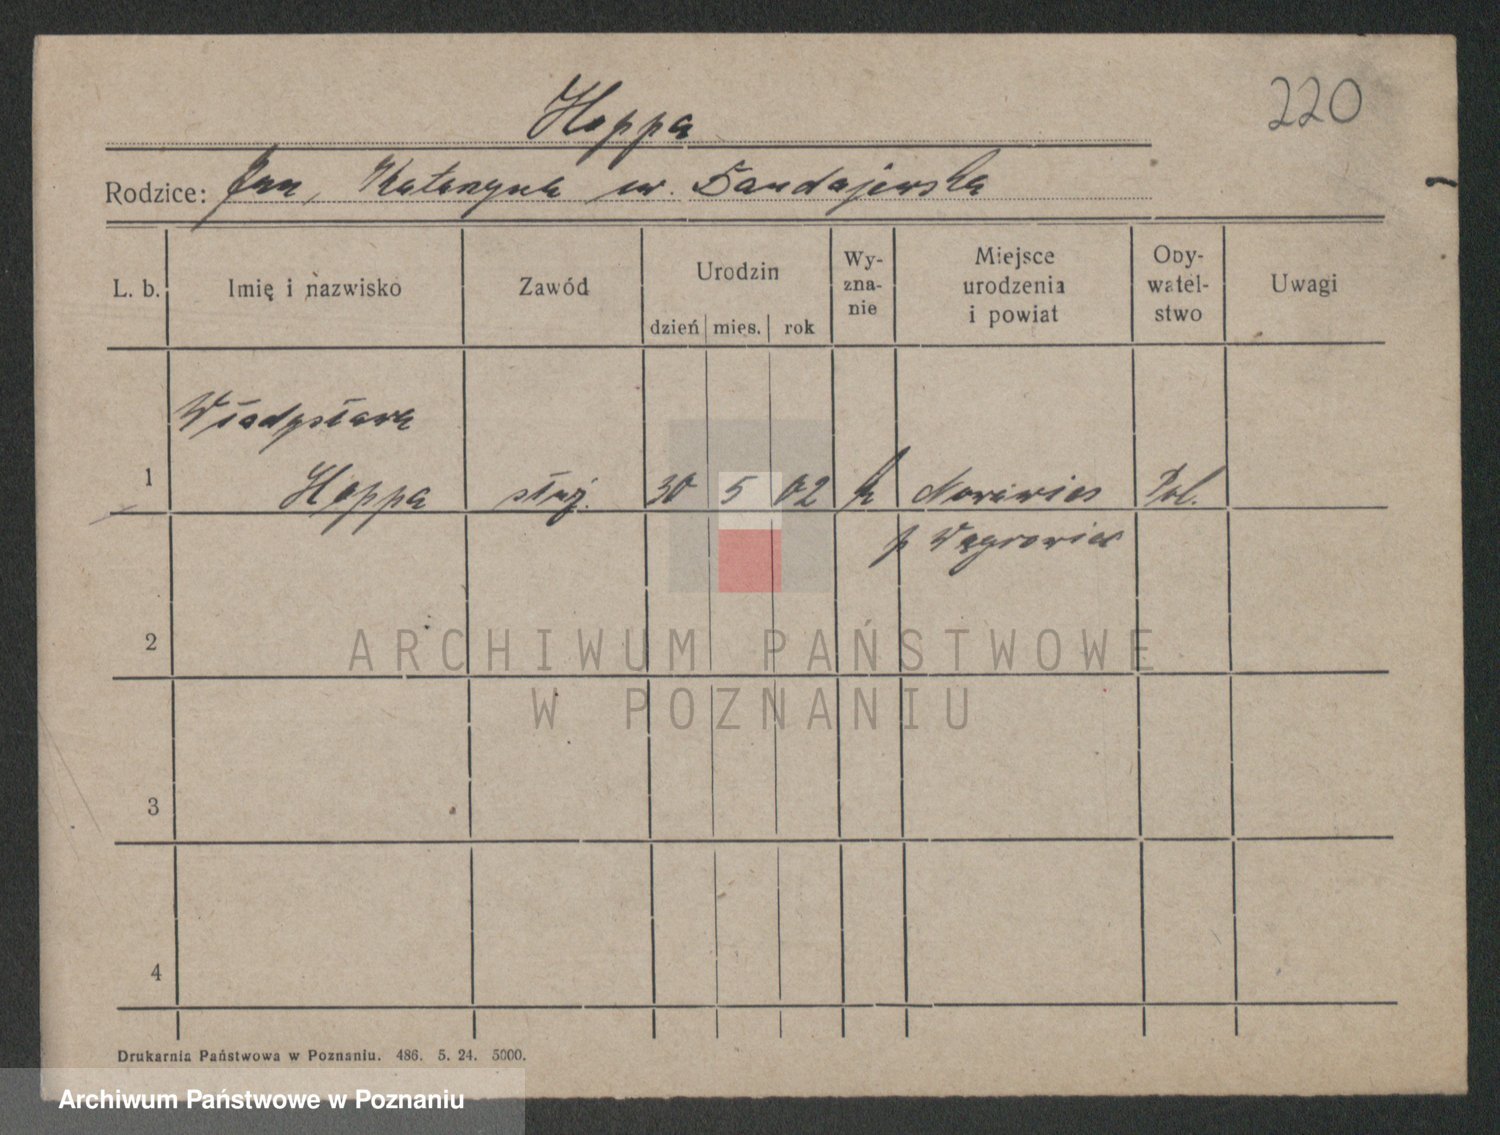 220
Hoppa
Rodzice: Jan, Katarzyna ur. Dandajewska
L. b. Imię i nazwisko Zawód Urodzin dzień mies. rok Wy-zna-nie Miejsce urodzenia i powiat Oby-watel-stwo Uwagi
Władysława
1 Hoppa służ. 30 5 02 k Nowawies Pol.
p Wągrowiec
2
ARCHIWUM PAŃSTWOWE
W POZNANIU
3
4
Drukarnia Państwowa w Poznaniu. 486. 5. 24. 5000.
Archiwum Państwowe w Poznaniu